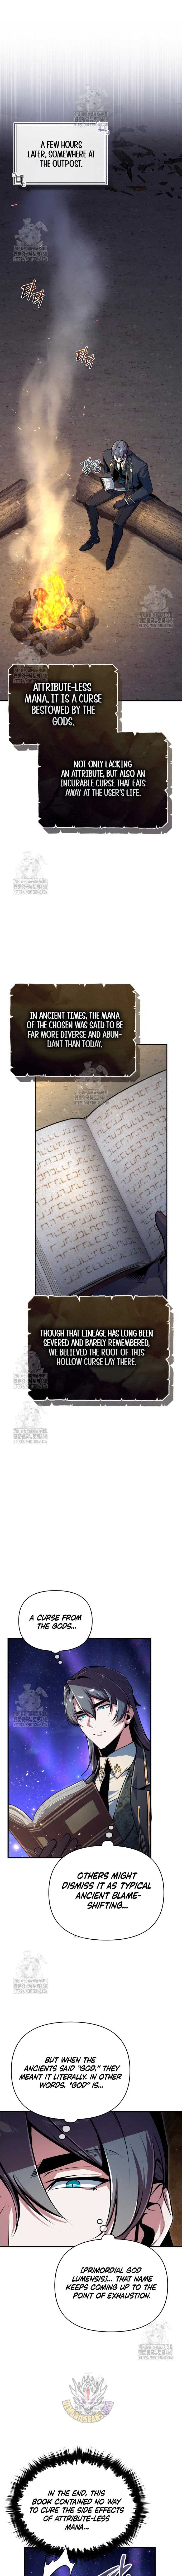 A FEW HOURS
LATER, SOMEWHERE AT
THE OUTPOST.
타
탁
타
탁
ATTRIBUTE-LESS
MANA. IT IS A CURSE
BESTOWED BY THE
GODS.
NOT ONLY LACKING
AN ATTRIBUTE, BUT ALSO AN
INCURABLE CURSE THAT EATS
AWAY AT THE USER'S LIFE.
IN ANCIENT TIMES, THE MANA
OF THE CHOSEN WAS SAID TO BE
FAR MORE DIVERSE AND ABUN-
DANT THAN TODAY.
THOUGH THAT LINEAGE HAS LONG BEEN
SEVERED AND BARELY REMEMBERED,
WE BELIEVED THE ROOT OF THIS
HOLLOW CURSE LAY THERE.
A CURSE FROM
THE GODS...
OTHERS MIGHT
DISMISS IT AS TYPICAL
ANCIENT BLAME-
SHIFTING...
BUT WHEN THE
ANCIENTS SAID "GOD," THEY
MEANT IT LITERALLY. IN OTHER
WORDS, "GOD" IS...
[PRIMORDIAL GOD
LUMENSIS]... THAT NAME
KEEPS COMING UP TO THE
POINT OF EXHAUSTION.
IN THE END, THIS
BOOK CONTAINED NO WAY
TO CURE THE SIDE EFFECTS
OF ATTRIBUTE-LESS
MANA...